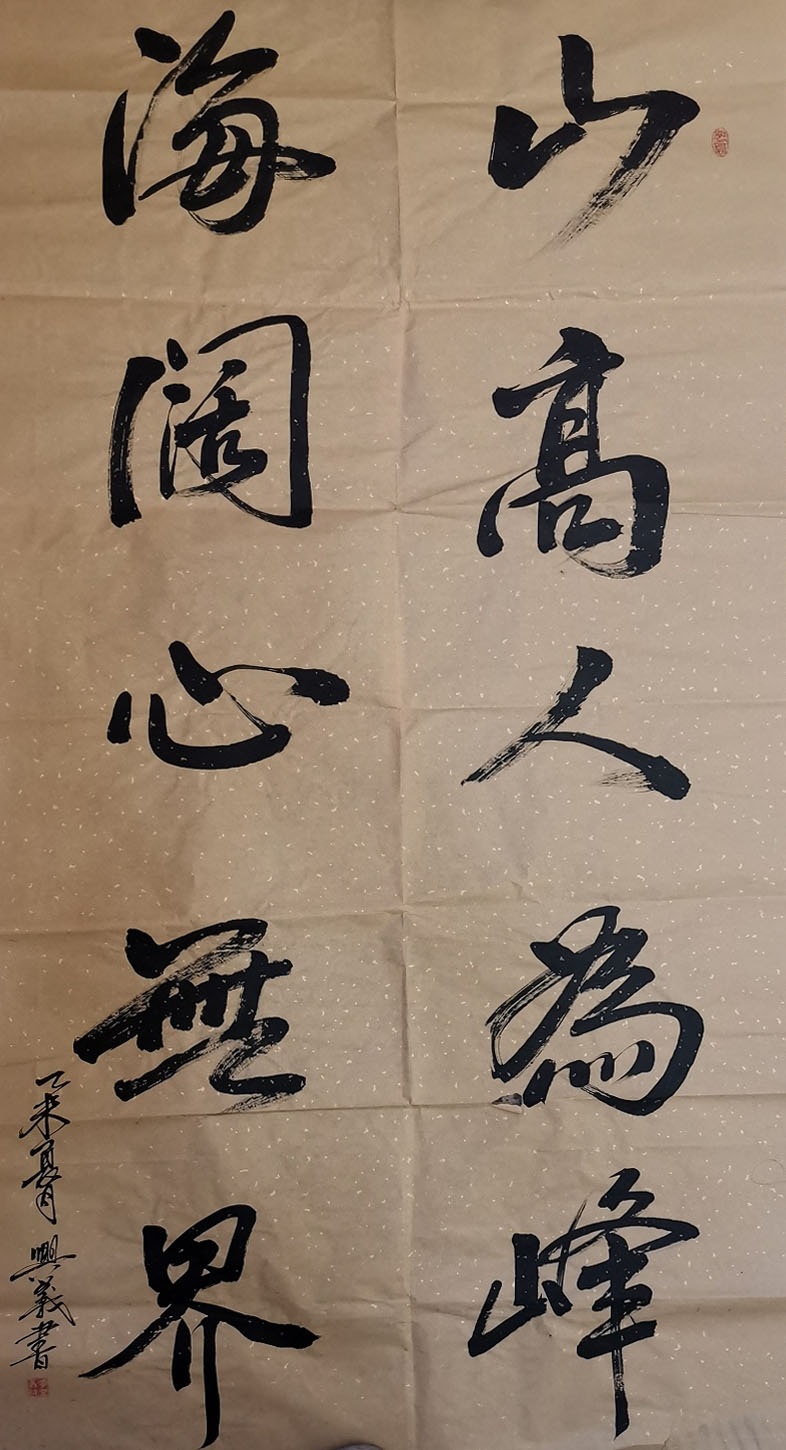 山高人為峰
海阔心無界
乙未夏月 興義書